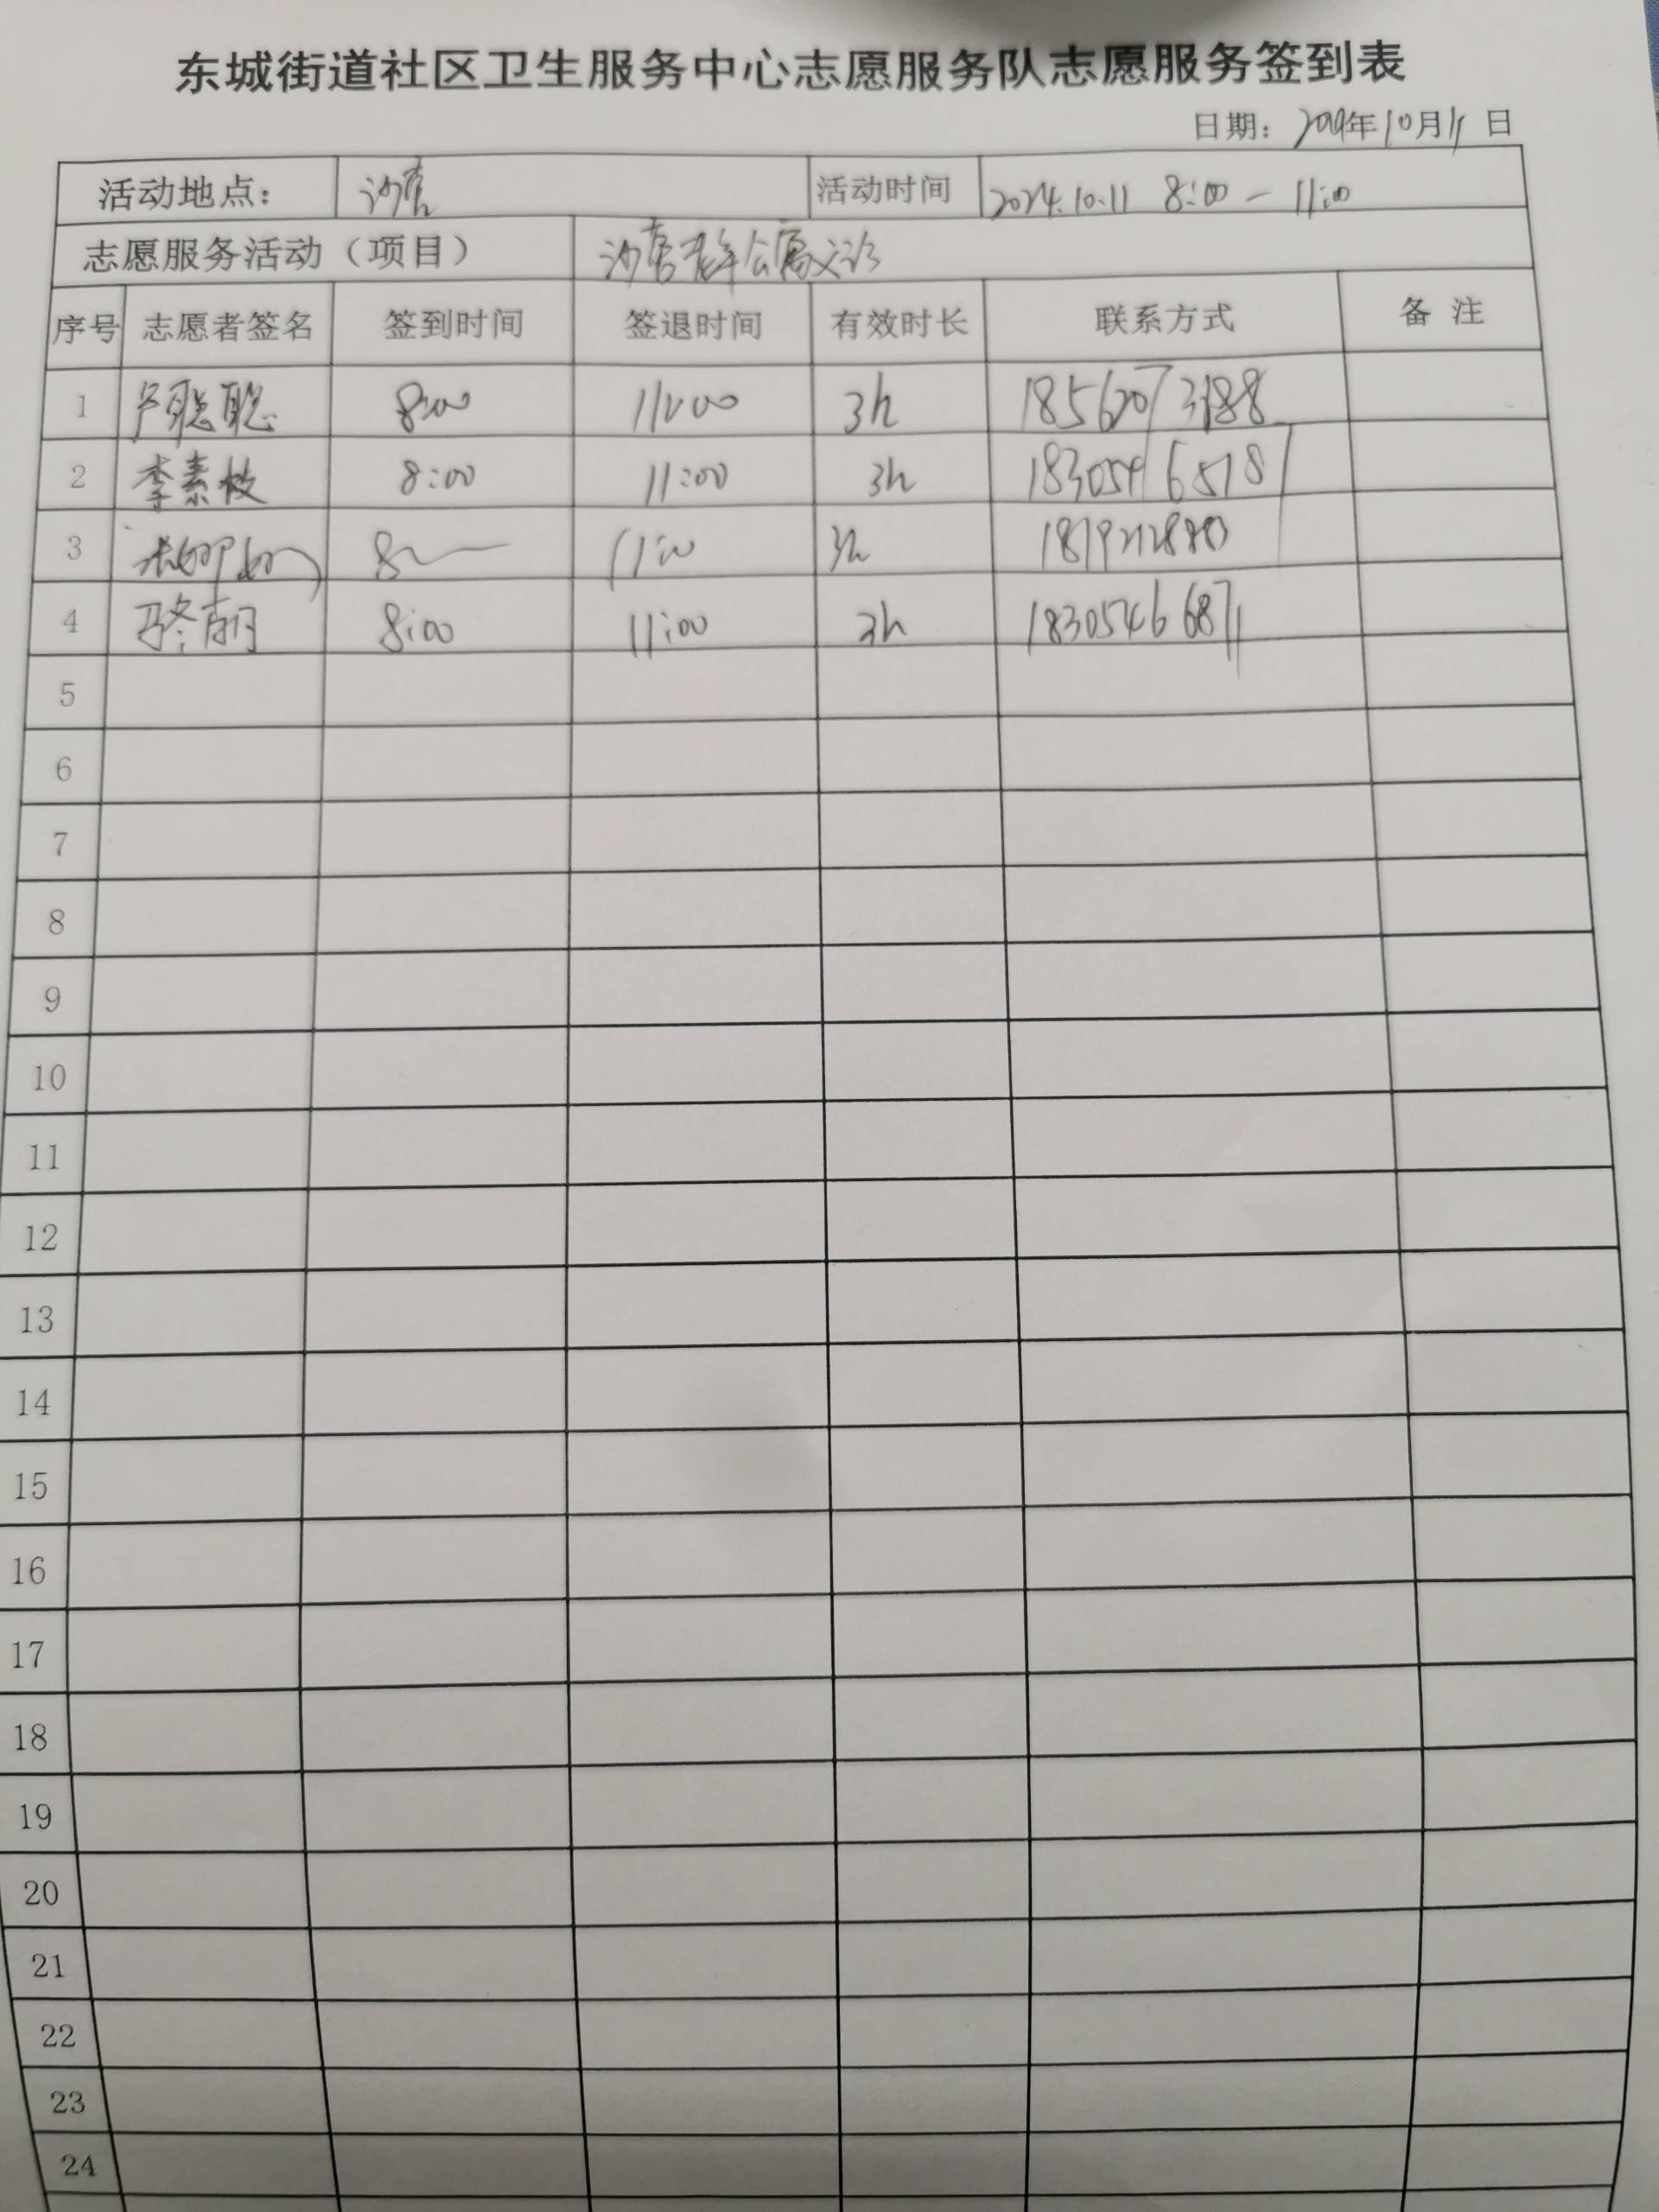 东城街道社区卫生服务中心志愿服务队志愿服务签到表
日期： 2024年10月11日
活动地点： 沙营 活动时间 2024.10.11 8:00 — 11:00
志愿服务活动（项目） 沙营老年公寓义诊
序号 志愿者签名 签到时间 签退时间 有效时长 联系方式 备 注
1 卢聪聪 8:00 11:00 3h 18562073188
2 李素枝 8:00 11:00 3h
3 8 11:00 3h
4 8:00 11:00 3h 18305466871
5
6
7
8
9
10
11
12
13
14
15
16
17
18
19
20
21
22
23
24